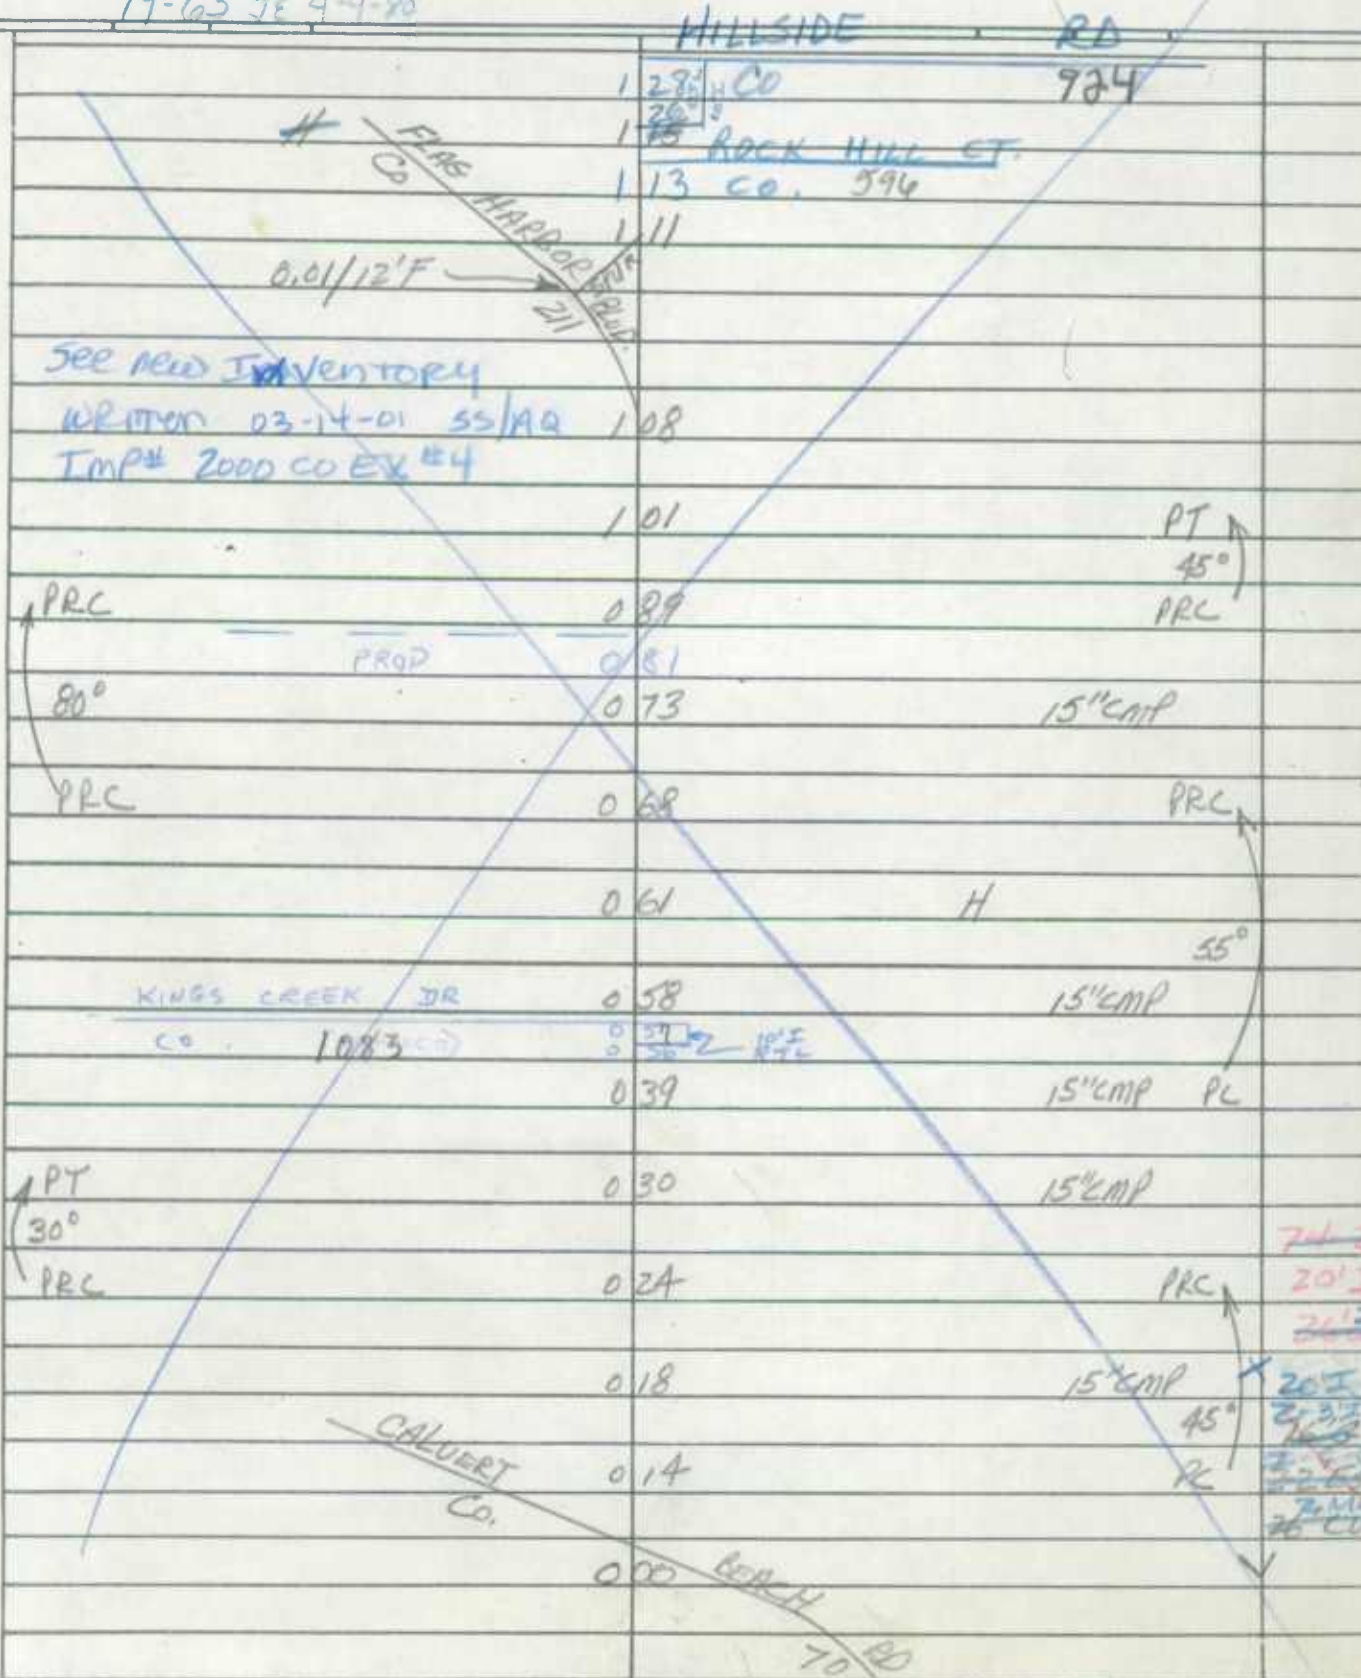 HILLSIDE RD
1 28 CO 924
26
1 15 ROCK HILL CT.
1 13 CO. 594
H
FLAG HARBOR BLVD.
CO
1 11
0.01/12'F
211
See new Inventory
WRITTEN 03-14-01 SS/AQ
1 08
Imp# 2000 CO EX #4
1 01
PT
45°
PRC
PRC
0 89
PROP
0 81
80°
0 73
15"CMP
PRC
0 68
PRC
0 61
H
55°
KINGS CREEK DR
0 58
15"CMP
CO. 1083
0 57
0 56
0 39
15"CMP PC
PT
0 30
15"CMP
30°
PRC
0 24
PRC
20'I
0 18
15"CMP
45°
20'I
CALVERT
CO.
0 14
PC
0 00
BEACH RD
70